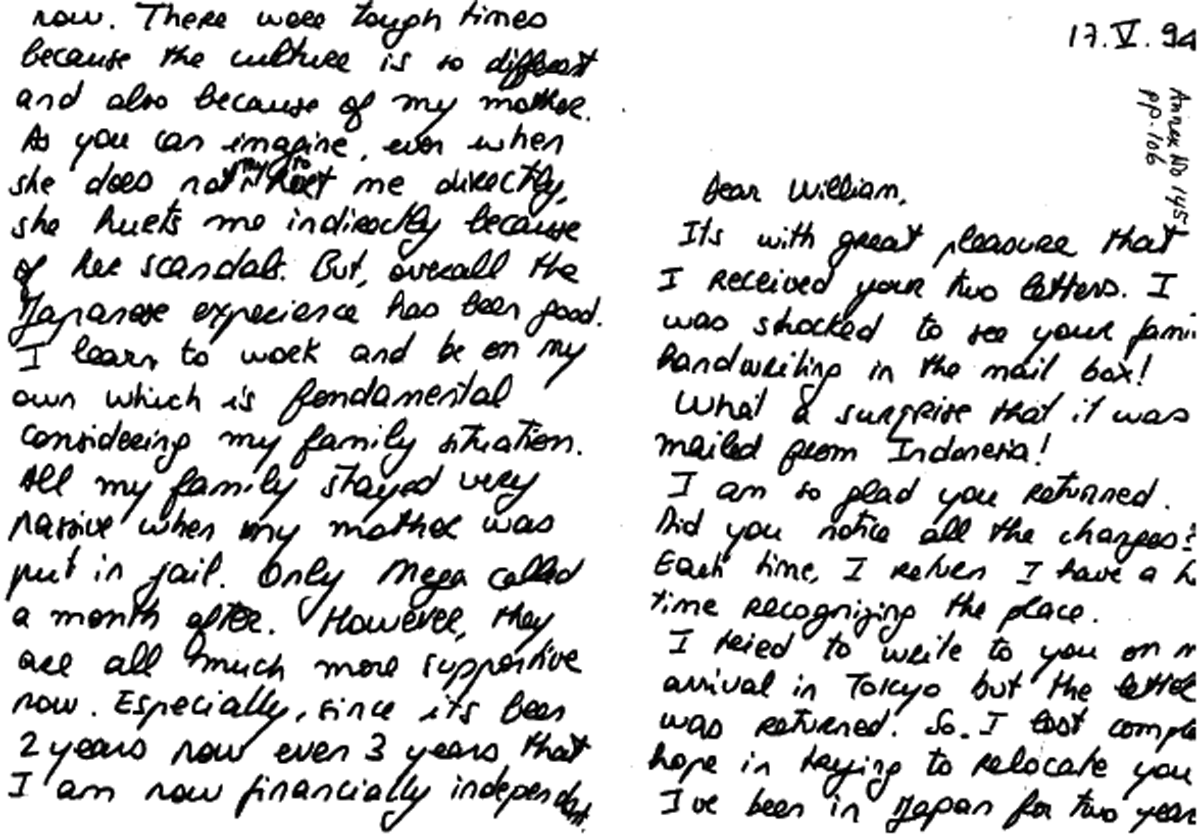 17.V.94
Annex No 145
pp. 106
Dear William,
Its with great pleasure that
I received your two letters. I
was shocked to see your fami
handwriting in the mail box!
What a surprise that it was
mailed from Indonesia!
I am so glad you returned.
Did you notice all the changes?
Each time, I return I have a h
time recognizing the place.
I tried to write to you on m
arrival in Tokyo but the letter
was returned. So. I lost comple
hope in trying to relocate you
I've been in Japan for two year
now. There were tough times
because the culture is so different
and also because of my mother.
As you can imagine, even when
she does not hurt me directly,
she hurts me indirectly because
of her scandals. But, overall the
Japanese experience has been good.
I learn to work and be on my
own which is fondamental
considering my family situation.
All my family stayed very
passive when my mother was
put in jail. Only Mega called
a month after. However, they
are all much more supportive
now. Especially, since its been
2 years now even 3 years that
I am now financially independant.